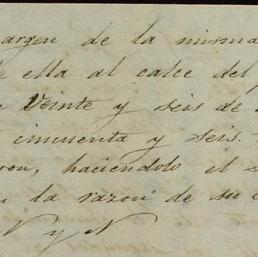 argen de la misma
e ella al calce del
Veinte y seis de
cincuenta y seis.
ron, haciendolo el
la razon de su
N y N